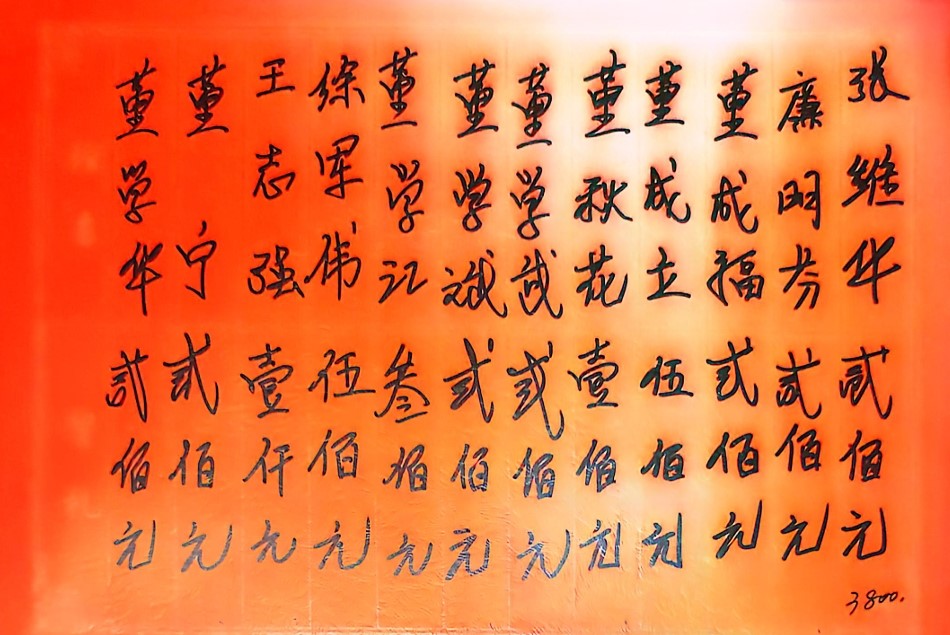 张维华贰佰元
廉明芬贰佰元
董成福贰佰元
董成立伍佰元
董秋花壹佰元
董学武贰佰元
董学斌贰佰元
董学江叁佰元
徐军伟伍佰元
王志强壹仟元
董宁贰佰元
董学华贰佰元
3800.